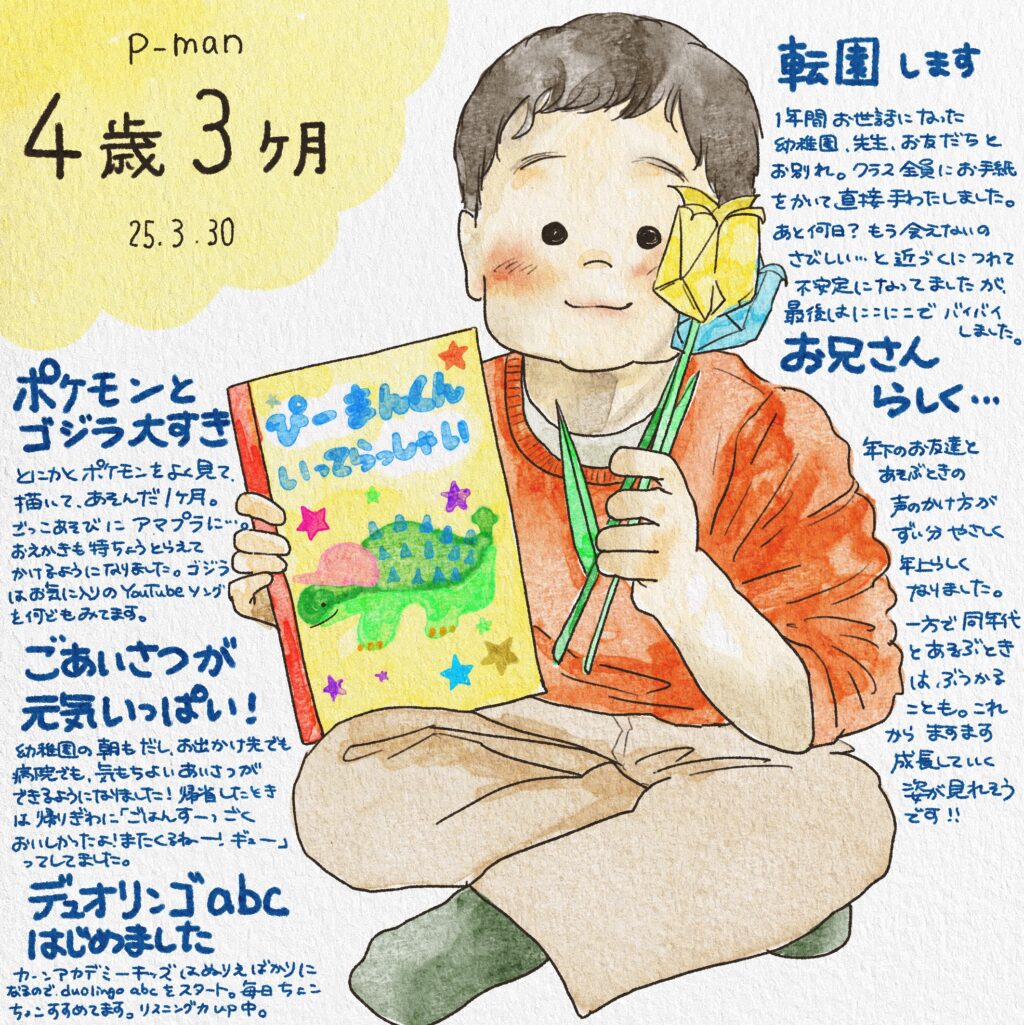 p-man
4歳3ヶ月
25.3.30
転園します
1年間お世話になった
幼稚園、先生、お友だちと
お別れ。クラス全員にお手紙
をかいて直接手わたしました。
あと何日？もう会えないの
さびしい…と近づくにつれて
不安定になってましたが、
最後はにこにこでバイバイ
しました。
お兄さん
らしく…
年下のお友達と
あそぶときの
声のかけ方が
ずい分やさしく
年上らしく
なりました。
一方で同年代
とあそぶとき
は、ぶつかる
ことも。これ
からますます
成長していく
姿が見れそう
です!!
ぴーまんくん
いってらっしゃい
ポケモンと
ゴジラ大すき
とにかくポケモンをよく見て、
描いて、あそんだ1ヶ月。
ごっこあそびにアマプラに…。
おえかきも特ちょうとらえて
かけるようになりました。ゴジラ
はお気に入りのYouTubeソング
を何どもみてます。
ごあいさつが
元気いっぱい！
幼稚園の朝もだし、お出かけ先でも
病院でも、気もちよいあいさつが
できるようになりました！帰省したとき
は帰りぎわに「ごはんすーっごく
おいしかったよ！またくるねー！ギュー」
ってしてました。
デュオリンゴabc
はじめました
カーンアカデミーキッズはぬりえばかりに
なるので、duolingo abcをスタート。毎日ちょこ
ちょこすすめてます。リスニング力up中。